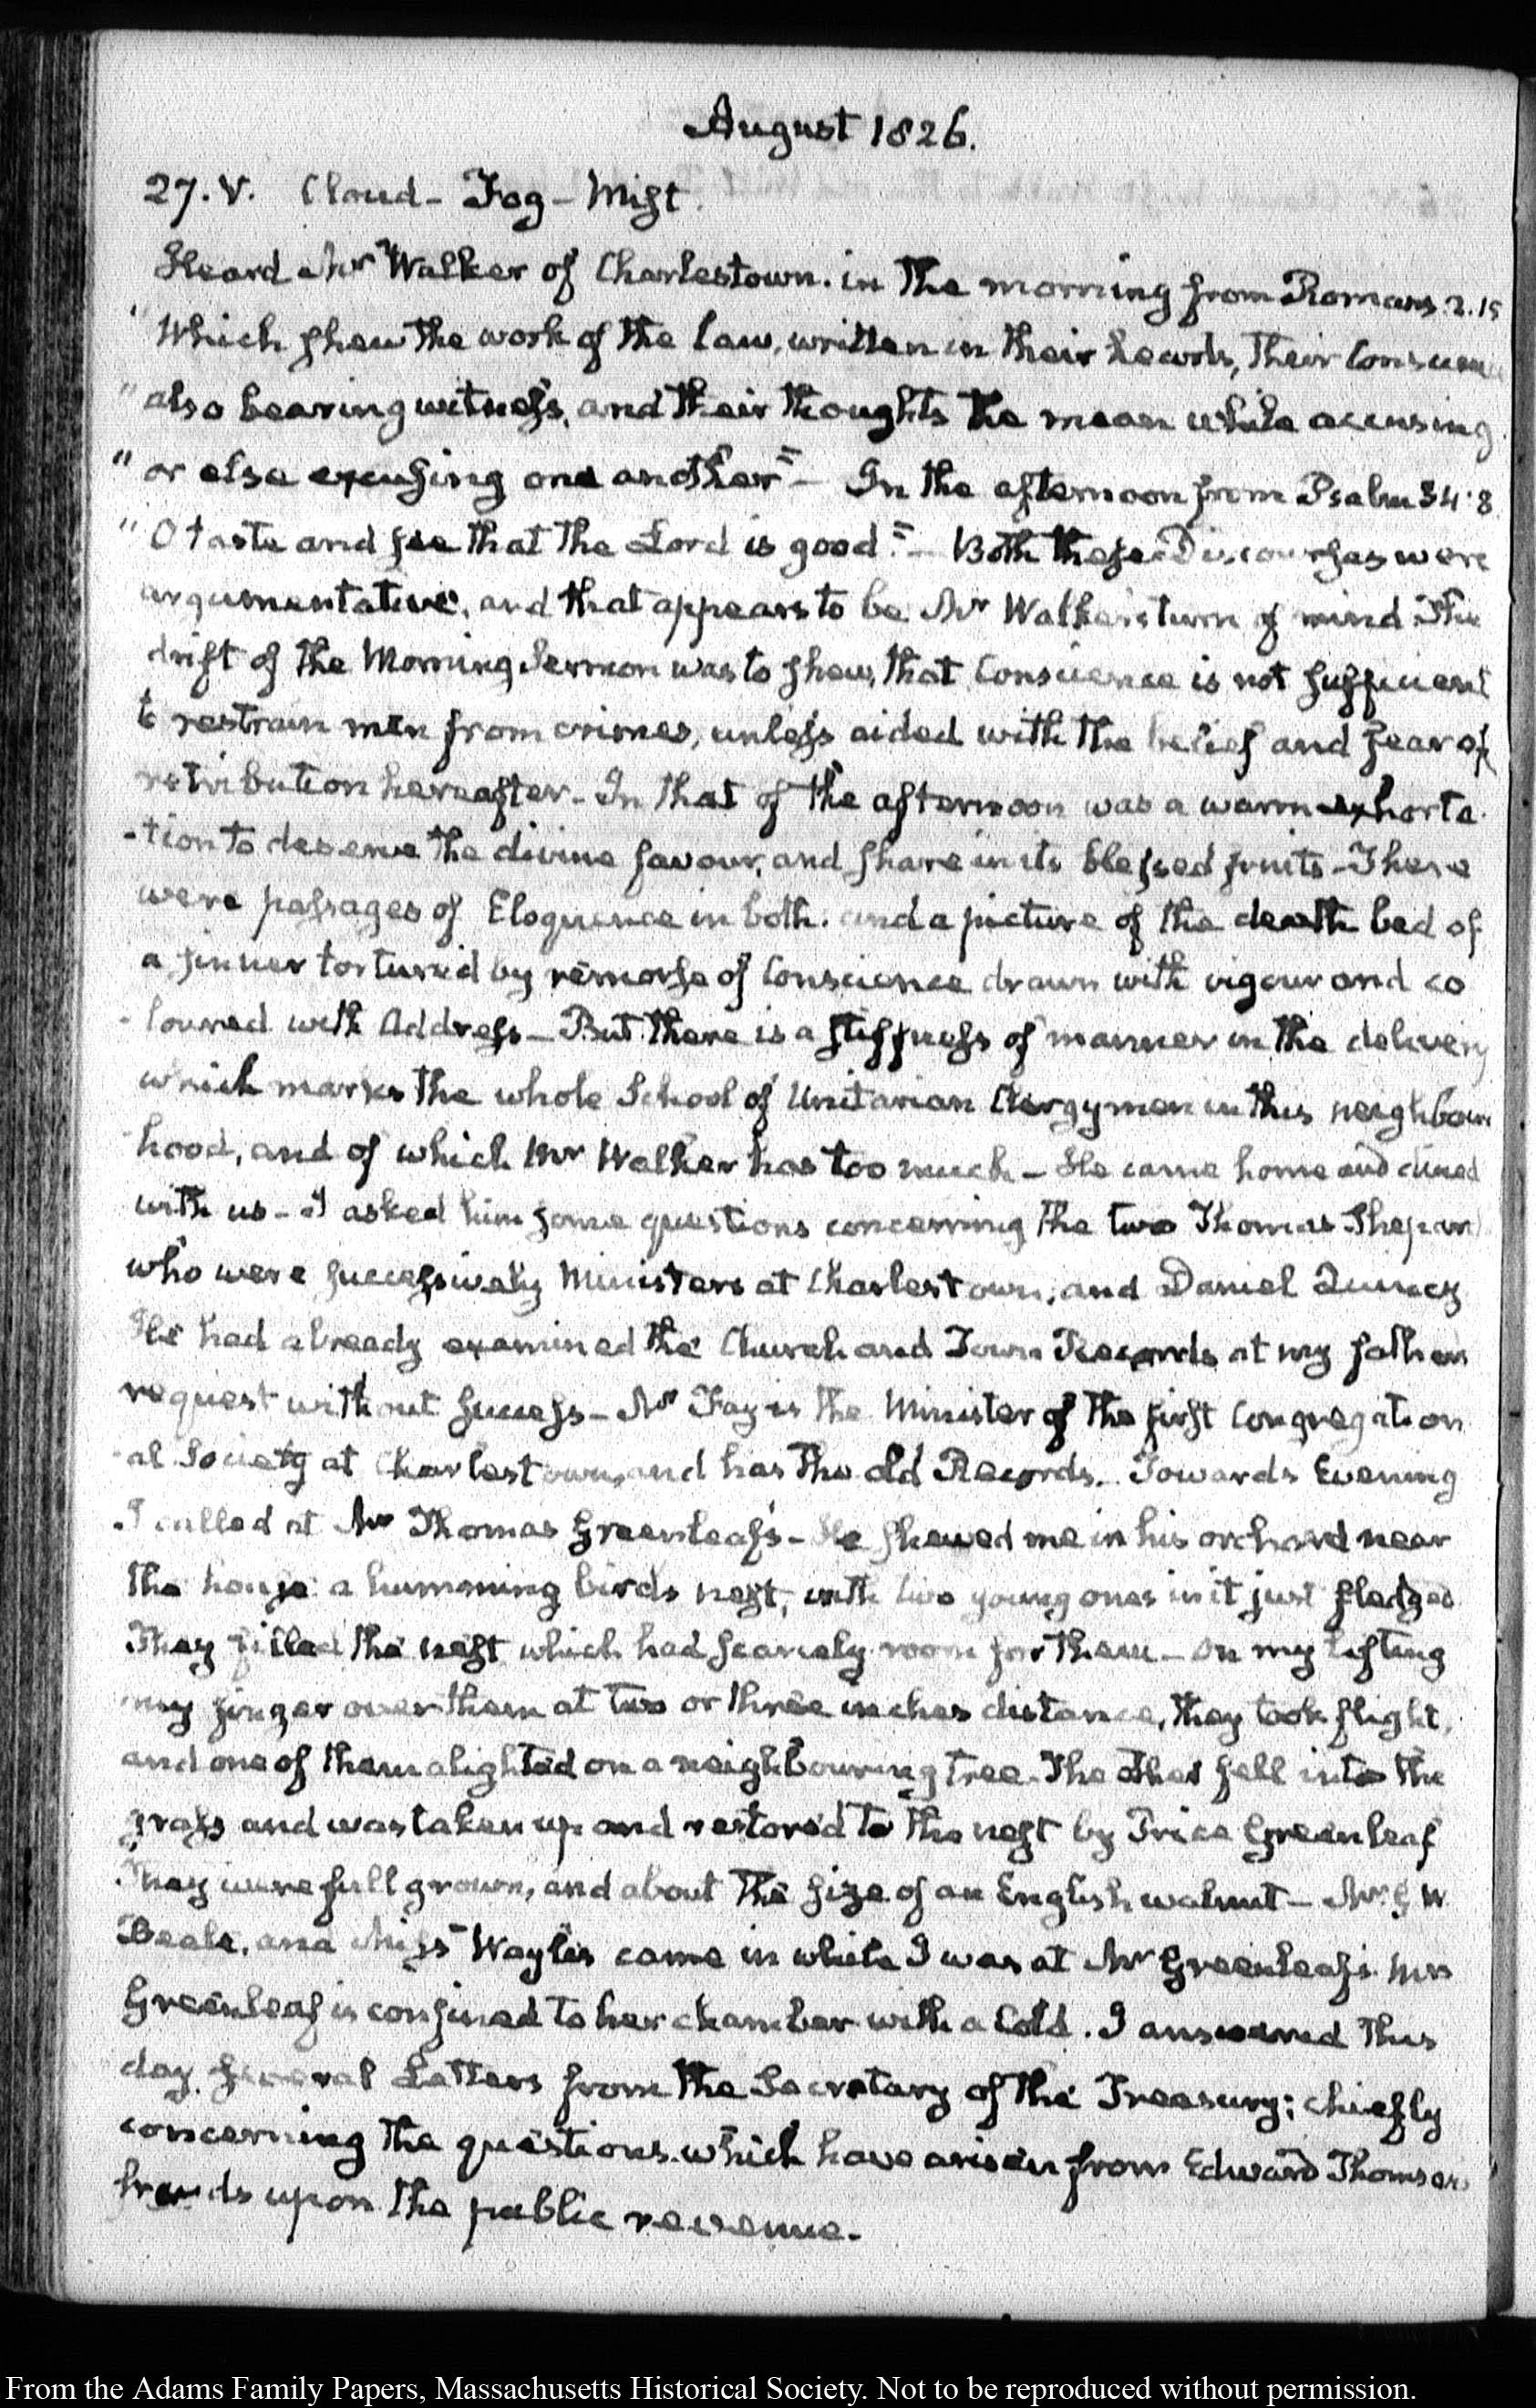 August 1826.
27. V. Cloud - Fog - Mist.
Heard Mr Walker of Charlestown. in the morning from Romans. 2.15
"Which shew the work of the law, written in their hearts, their Conscience
"also bearing witness, and their thoughts the mean while accusing
"or else excusing one another" - In the afternoon from Psalm 34.8.
"O taste and see that the Lord is good." - Both these Discourses were
argumentative, and that appears to be Mr Walker's turn of mind. The
drift of the Morning Sermon was to shew, that Conscience is not sufficient
to restrain men from crimes, unless aided with the belief and fear of
retribution hereafter - In that of the afternoon was a warm exhorta
-tion to deserve the divine favour, and share in its blessed fruits - There
were passages of Eloquence in both. and a picture of the death bed of
a sinner tortured by remorse of Conscience drawn with vigour and co
-loured with Address - But there is a stiffness of manner in the delivery
which marks the whole School of Unitarian Clergymen in this neighbour
hood, and of which Mr Walker has too much - He came home and dined
with us - I asked him some questions concerning the two Thomas Shepard
who were successively Ministers at Charlestown, and Daniel Quincy
He had already examined the Church and Town Records at my father's
request without success - Mr Fay is the Minister of the first Congregation
-al Society at Charlestown, and has the old Records. Towards Evening
I called at Mr Thomas Greenleaf's - He shewed me in his orchard near
the house a humming birds nest, with two young ones in it just fledged
They filled the nest which had scarcely room for them - On my lifting
my finger over them at two or three inches distance, they took flight,
and one of them alighted on a neighbouring tree. The other fell into the
grass and was taken up and restored to the nest by Price Greenleaf
They were full grown, and about the size of an English walnut - Mr G W
Beale, and Miss Wayles came in while I was at Mr Greenleaf's. Mrs
Greenleaf is confined to her chamber with a Cold. I answered this
day several Letters from the Secretary of the Treasury; chiefly
concerning the questions which have arisen from Edward Thomson's
frauds upon the public revenue.
From the Adams Family Papers, Massachusetts Historical Society. Not to be reproduced without permission.